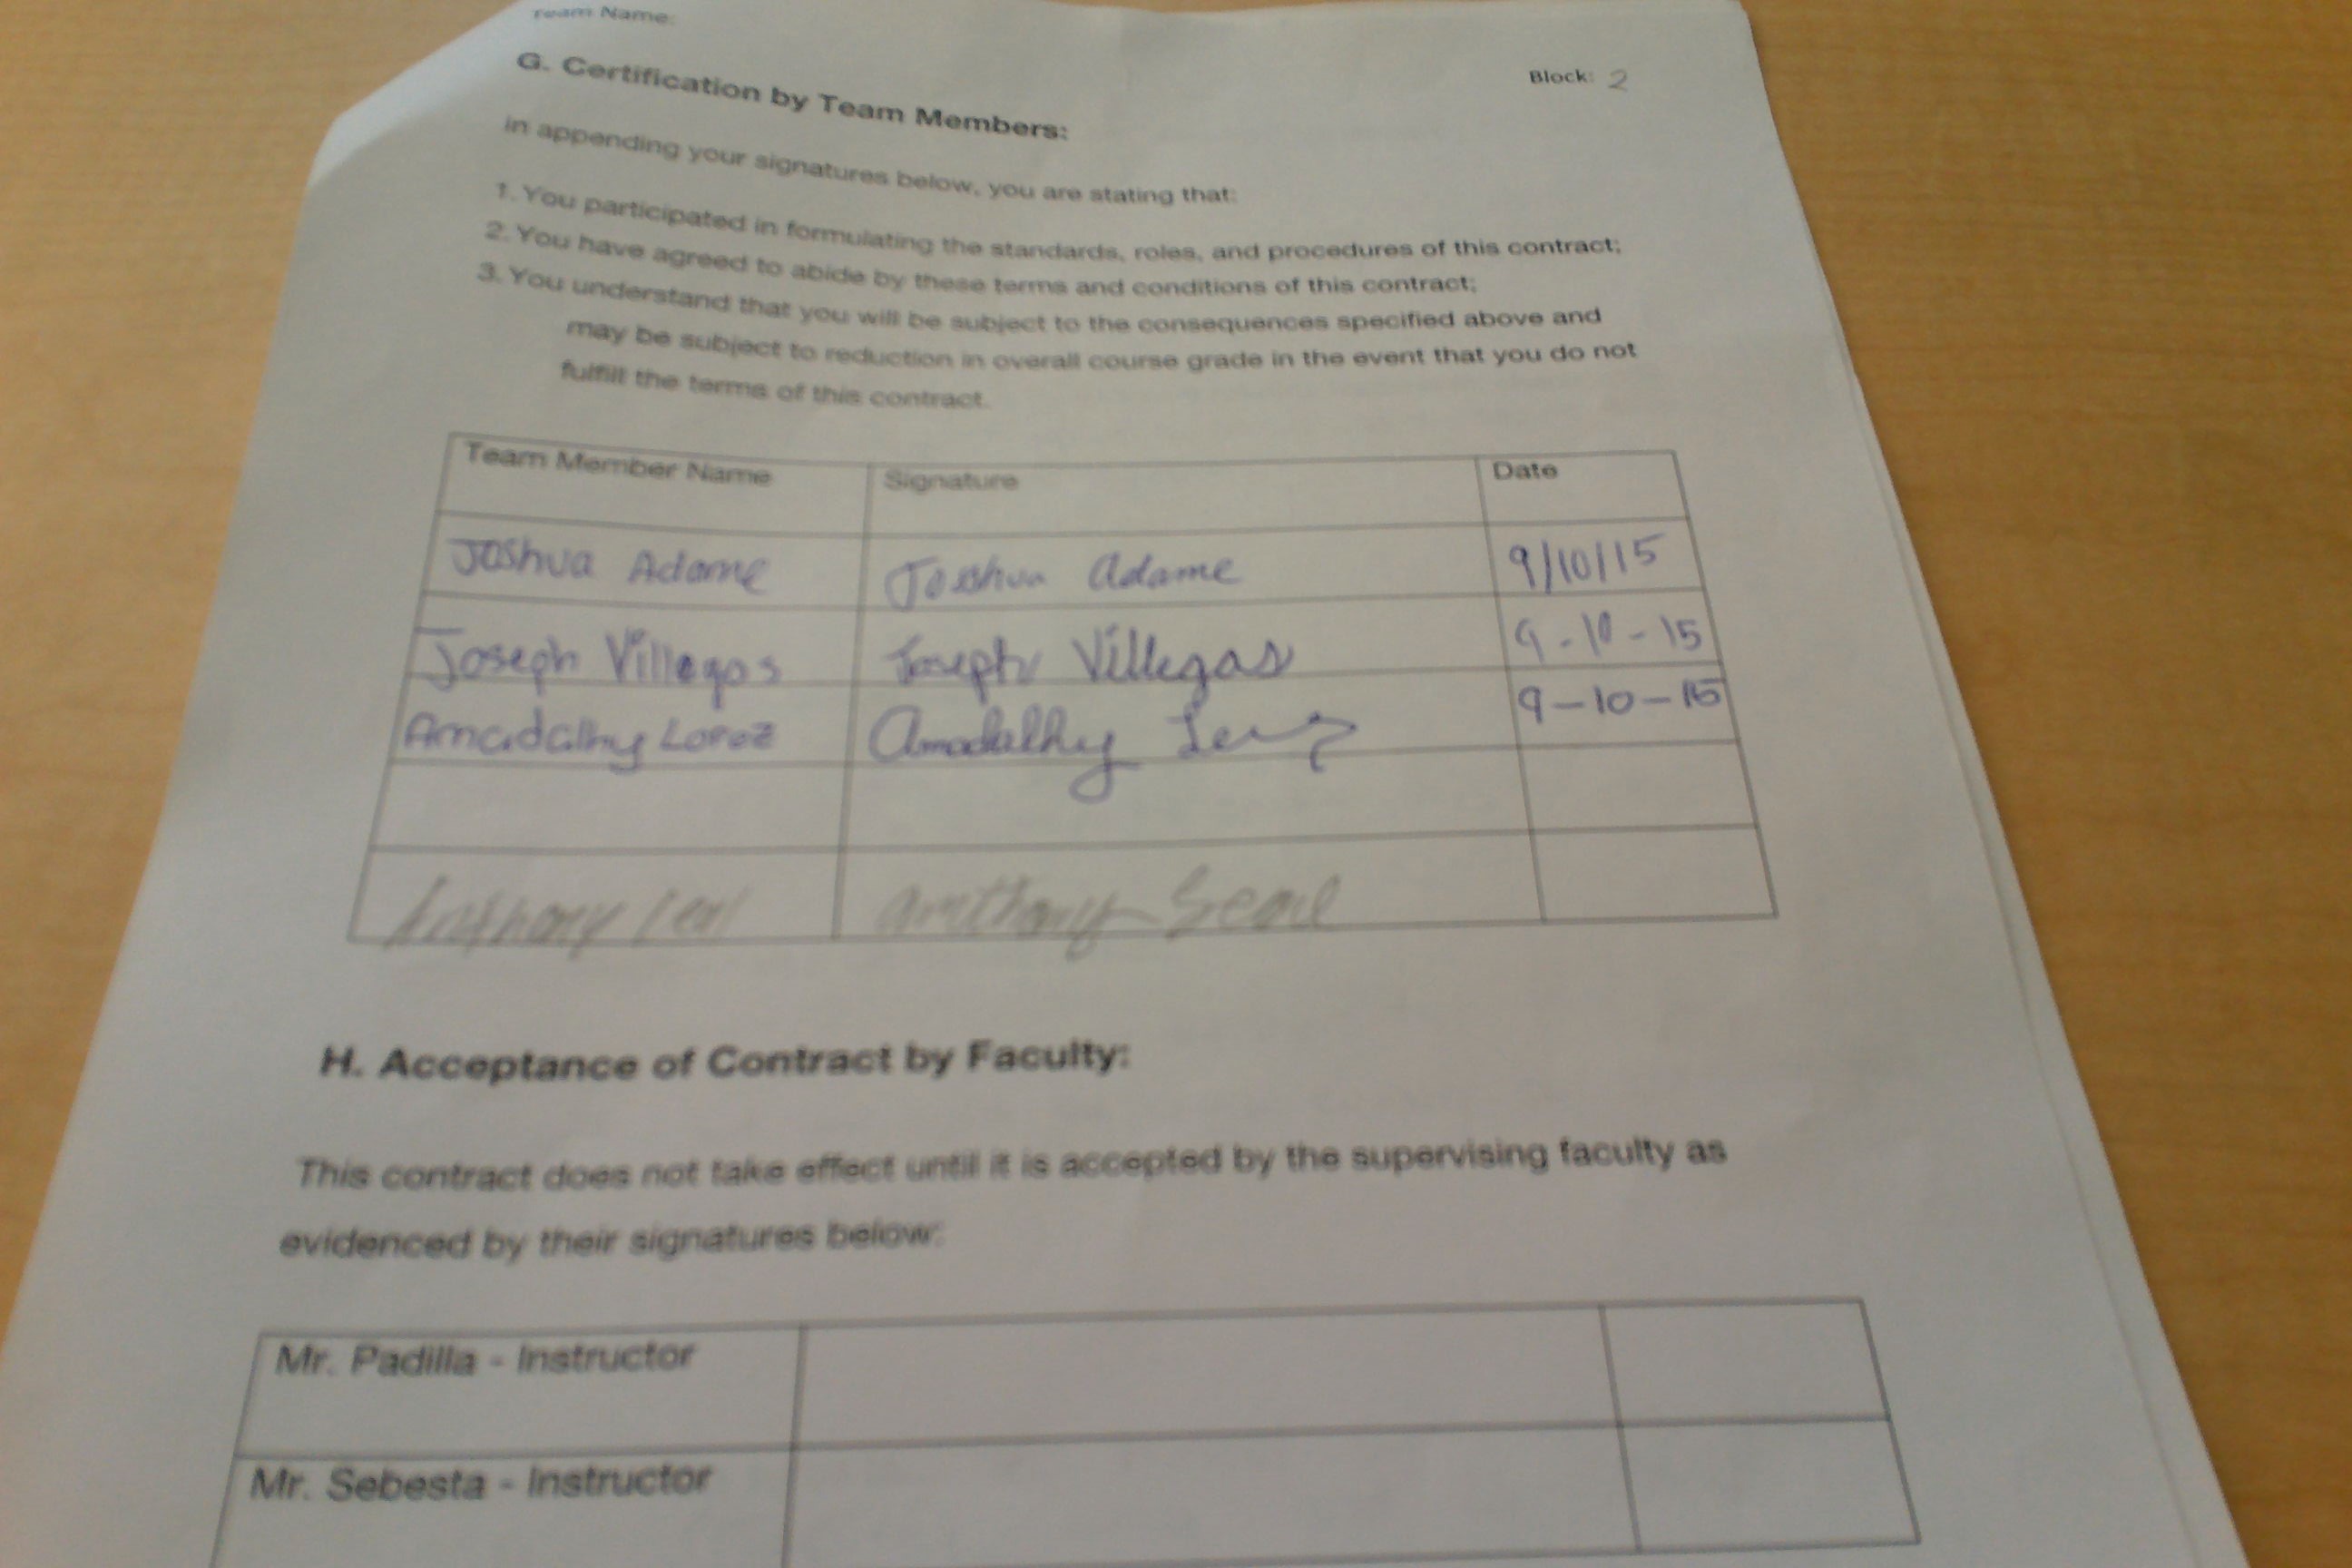 Team Name:
Block: 2
G. Certification by Team Members:
in appending your signatures below, you are stating that:
1. You participated in formulating the standards, roles, and procedures of this contract;
2. You have agreed to abide by these terms and conditions of this contract;
3. You understand that you will be subject to the consequences specified above and
may be subject to reduction in overall course grade in the event that you do not
fulfill the terms of this contract.
Team Member Name Signature Date
Joshua Adame Joshua Adame 9/10/15
Joseph Villegas Joseph Villegas 9-10-15
Amadalhy Lopez Amadalhy 9-10-15
Anthony Anthony
H. Acceptance of Contract by Faculty:
This contract does not take effect until it is accepted by the supervising faculty as
evidenced by their signatures below:
Mr. Padilla - Instructor
Mr. Sebesta - Instructor